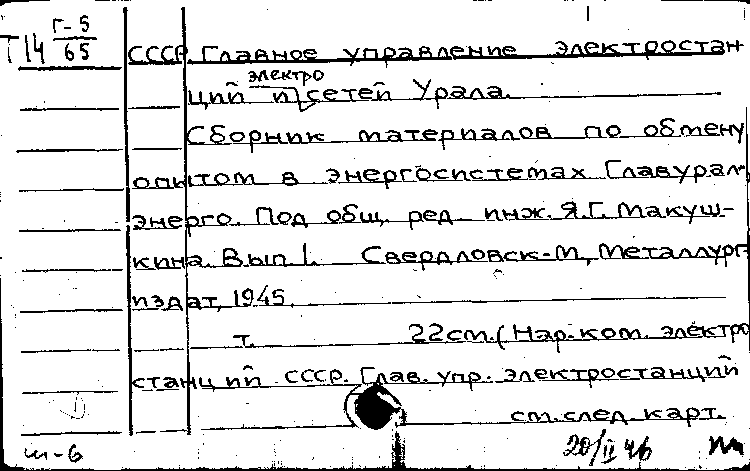 Т14 Г-5/65
СССР. Главное управление электростан-
ций и электросетей Урала.
Сборник материалов по обмену
опытом в энергосистемах Главурал-
энерго. Под общ. ред. инж. Я.Г. Макуш-
кина. Вып 1. Свердловск-М, Металлург-
издат, 1945.
т. 22см. (Нар. ком. электро
станций СССР. Глав. упр. электростанций
см. след. карт.
ш-6 20/II 46